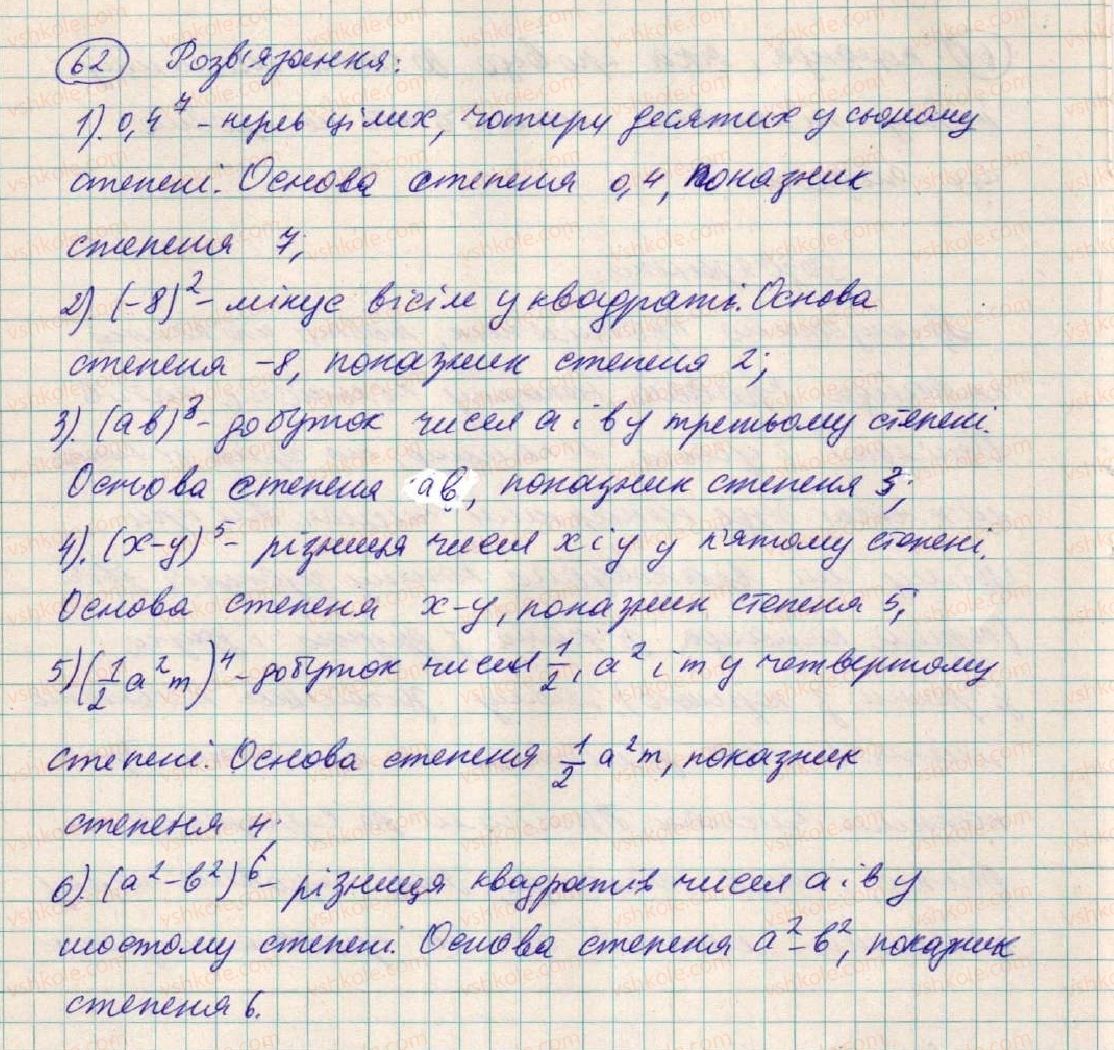 62 Розв'язання:
1). 0,4⁷ – нуль цілих, чотири десятих у сьомому
степені. Основа степеня 0,4, показник
степеня 7;
2). (-8)² – мінус вісім у квадраті. Основа
степеня -8, показник степеня 2;
3). (ав)³ – добуток чисел а і в у третьому степені.
Основа степеня ав, показник степеня 3;
4). (х-у)⁵ – різниця чисел х і у у п'ятому степені.
Основа степеня х-у, показник степеня 5;
5) (1/2 a²m)⁴ – добуток чисел 1/2, a² і m у четвертому
степені. Основа степеня 1/2 a²m, показник
степеня 4.
6). (a²-в²)⁶ – різниця квадратів чисел а і в у
шостому степені. Основа степеня a²-в², показник
степеня 6.